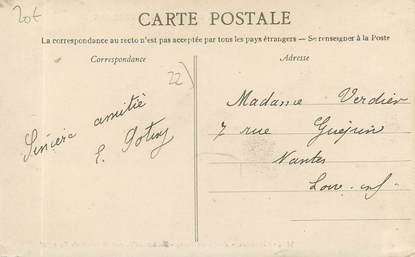 20t
CARTE POSTALE
La correspondance au recto n'est pas acceptée par tous les pays étrangers — Se renseigner à la Poste
Correspondance
Adresse
22)
Sincère amitié
E.
Madame Verdier
7 rue Guépin
Nantes
Loire-Inf